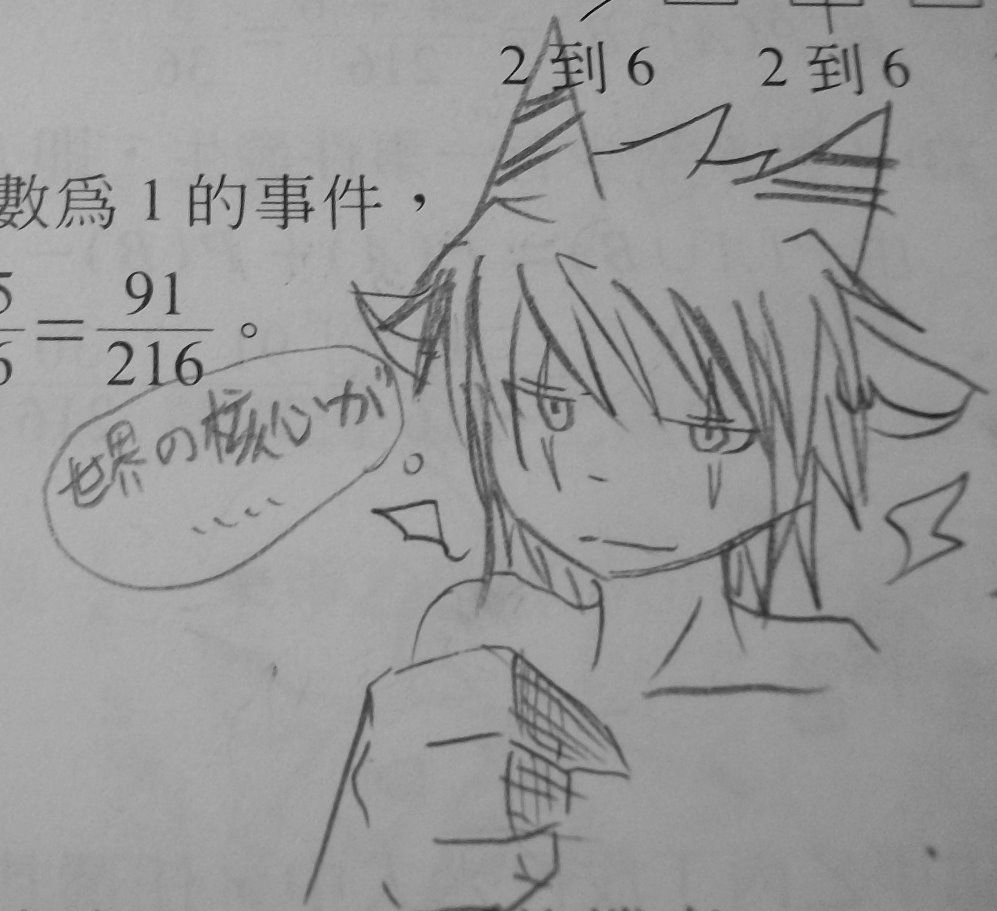 2到6 2到6
數爲1的事件，
5/6=91/216。
世界の核心が
……